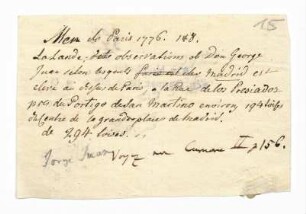 15
Mem de Paris 1776. 148.
La Lande, des observations de Don George
Juan selon lesquels Madrid est
élevé au dessus de Paris, a la Rue de los Preciados
près du Portigo de San Martino environ 194 toises
du Centre de la grande place de Madrid.
de 294 toises.
Jorge Juan Voyez II p 156.